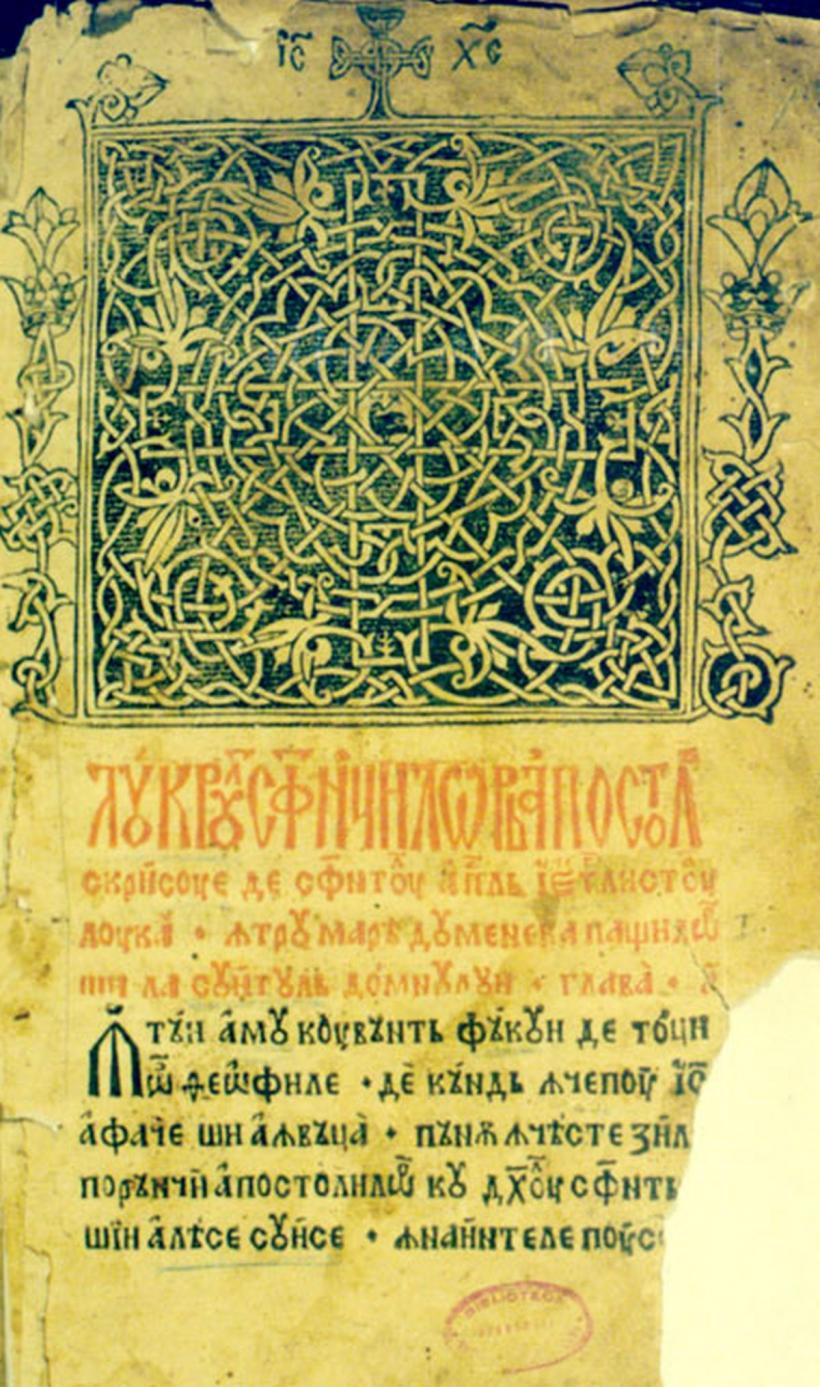 іс хс
лꙋкрꙋл сфинчилѡр апостол
скрисоуе де сфнтоул апль іеѵлистоу
лоука • ꙟтрꙋ маре дꙋменека пашилѡр
ши ла сꙋитꙋль домнꙋлꙋи • глава • а
Ꙟтѫи амꙋ коувѫнть фѫкꙋи де тоци
ѡ ѳеѡфиле • де кѫндь ꙟчепоу іс
афаче ши аꙟвѫца • пѫнѫ ꙟчѣсте зил
порѫнчи апостолилѡр кꙋ дхоул сфнть
шїи алѣсе сꙋисе • ꙟнаинтеле поус
BIBLIOTECA